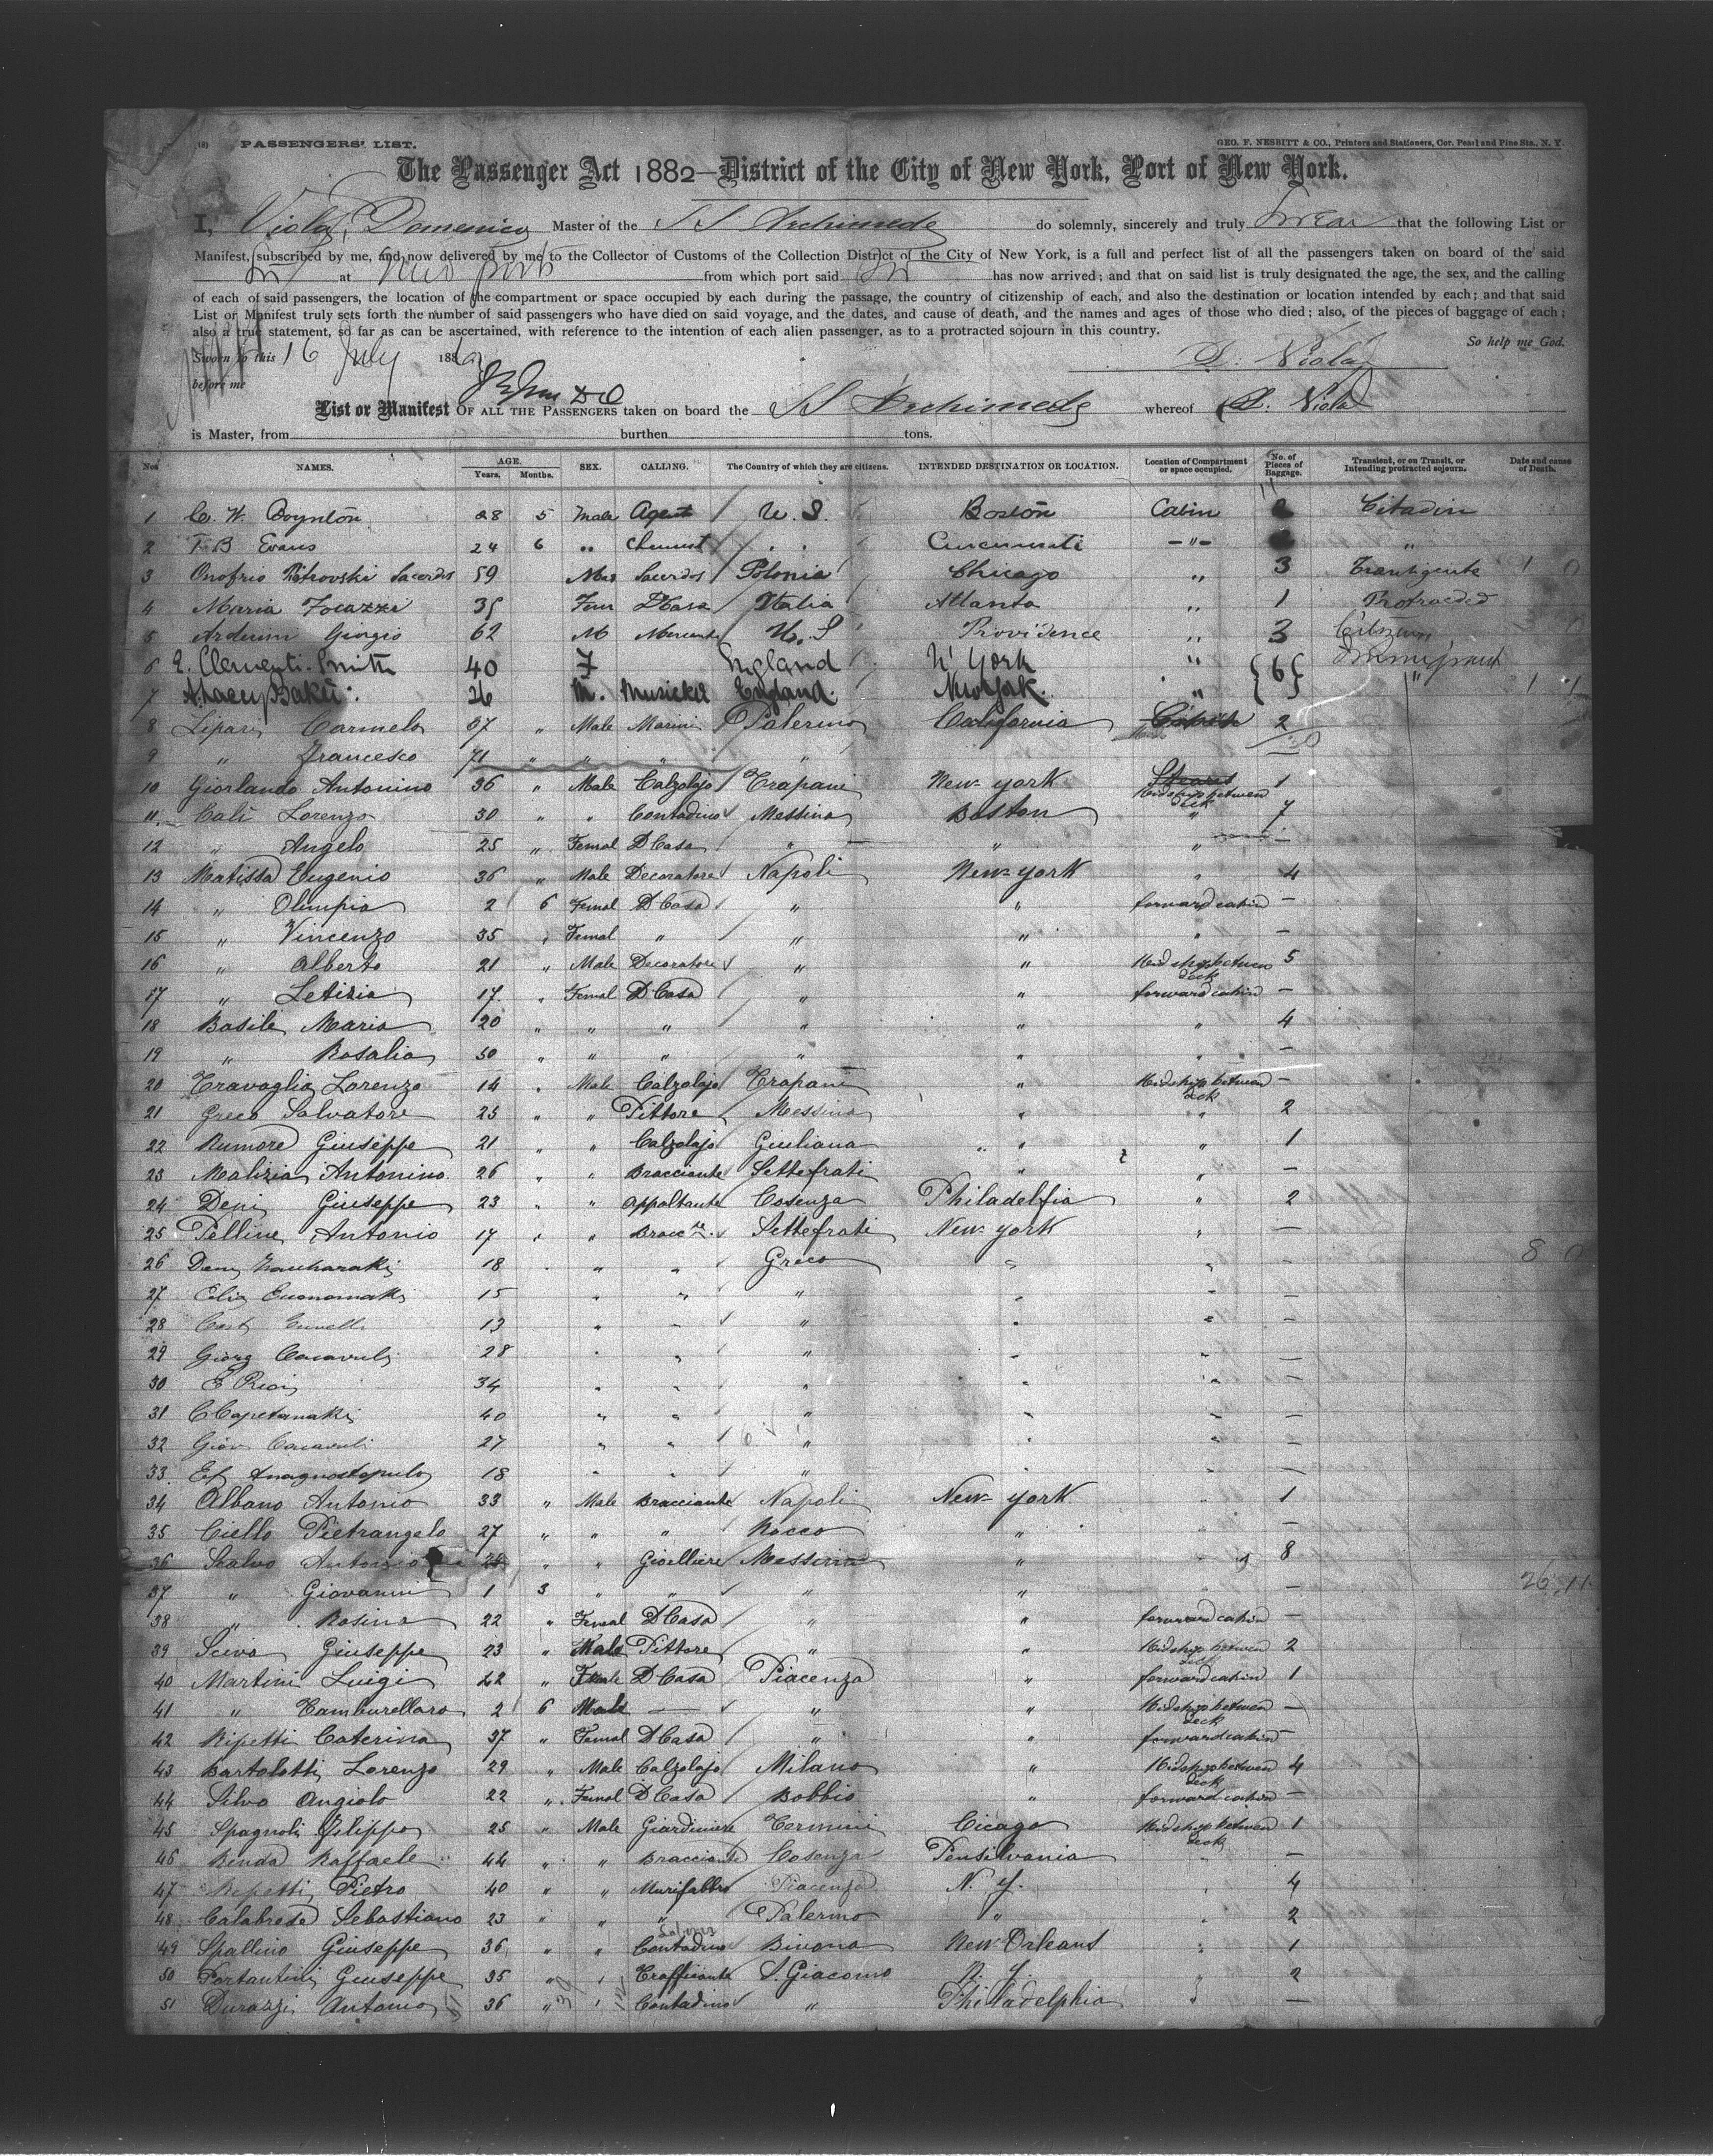 (8) PASSENGERS' LIST. GEO. F. NESBITT & CO., Printers and Stationers, Cor. Pearl and Pine Sts., N. Y.
The Passenger Act 1882—District of the City of New York, Port of New York.
I, Viola, Domenico Master of the SS Archimede do solemnly, sincerely and truly swear that the following List or
Manifest, subscribed by me, and now delivered by me to the Collector of Customs of the Collection District of the City of New York, is a full and perfect list of all the passengers taken on board of the said
at New York from which port said has now arrived; and that on said list is truly designated the age, the sex, and the calling
of each of said passengers, the location of the compartment or space occupied by each during the passage, the country of citizenship of each, and also the destination or location intended by each; and that said
List or Manifest truly sets forth the number of said passengers who have died on said voyage, and the dates, and cause of death, and the names and ages of those who died; also, of the pieces of baggage of each;
also a true statement, so far as can be ascertained, with reference to the intention of each alien passenger, as to a protracted sojourn in this country. So help me God.
Sworn to this 16 July 188 D. Viola
before me
List or Manifest OF ALL THE PASSENGERS taken on board the SS Archimede whereof D. Viola
is Master, from burthen tons.
Nos NAMES. AGE. Years. Months. SEX. CALLING. The Country of which they are citizens. INTENDED DESTINATION OR LOCATION. Location of Compartment or space occupied. No. of Pieces of Baggage. Transient, or on Transit, or Intending protracted sojourn. Date and cause of Death.
1 C. W. Boynton 28 5 Male Agent U. S. Boston Cabin Citadin
2 F B Evans 24 6 " Chemist Cincinnati -"- "
3 Onofrio Pitrovski Sacerdos 59 Mas Sacerdos Polonia Chicago " 3
4 Maria Focazzi 35 Fem D Casa Italia Atlanta " 1 Protracded
5 Arduini Giorgio 62 M Mercante U. S Providence " 3 Citizen
6 E. Clementi-Smith 40 F England N' York " 6
7 26 M. England. New York. " "
8 Lipari Carmelo 37 " Male Marini Palermo California Cabin 2
9 " Francesco 71 " " " "
10 Giorlando Antonino 36 " Male Calzolajo Trapani New-york Midships between deck 1
11 Cali Lorenzo 30 " " Contadino Messina Boston " 7
12 " Angelo 25 " Femal D Casa " " " —
13 Matissa Eugenio 36 " Male Decoratore Napoli New-york " 4
14 " Olimpia 2 6 Femal D Casa " " forward cabin —
15 " Vincenzo 35 " Femal " " " " —
16 " Alberto 21 " Male Decoratore " " Midships between deck 5
17 " Letizia 17 " Femal D Casa " " forward cabin —
18 Basile Maria 20 " " " " " " 4
19 " Rosalia 50 " " " " " " —
20 Travaglia Lorenzo 14 " Male Calzolajo Trapani " Midships between deck —
21 Greco Salvatore 25 " " Pittore Messina " " 2
22 Rumore Giuseppe 21 " " Calzolajo Giuliana " " 1
23 Malizia Antonino 26 " " Bracciante Settefrati " " —
24 Deni Giuseppe 23 " " Appaltante Cosenza Philadelfia " 2
25 Pelline Antonio 17 " " Bracc.te Settefrati New-york " —
26 18 " " Greco " " —
27 15 " " " " " —
28 13 " " " " " —
29 Giorg 28 " " " " " —
30 34 " " " " " —
31 C Capetanaki 40 " " " " " —
32 Giov 27 " " " " " —
33 Ef Anagnostopulo 18 " " " " " —
34 Albano Antonio 33 " Male Bracciante Napoli New-york " 1
35 Ciello Pietrangelo 27 " " " Rocco " " —
36 Scalvo Antonio " " Gioielliere Messina " " 8
37 " Giovanni 1 3 " " " " —
38 " Rosina 22 " Femal D Casa " " forward cabin —
39 Scivo Giuseppe 23 " Male Pittore " " Midships between deck 2
40 Martini Luigi 22 " D Casa Piacenza " forward cabin 1
41 " Tamburellaro 2 6 Male — " " Midships between deck —
42 Ripetti Caterina 37 " Femal D Casa " " forward cabin —
43 Bartolotti Lorenzo 29 " Male Calzolajo Milano " Midships between deck 4
44 Silvo Angiolo 22 " Femal D Casa Bobbio " forward cabin —
45 Spagnoli Filippo 25 " Male Giardiniere Termini Cicago Midships between deck 1
46 Renda Raffaele 44 " " Bracciante Cosenza Pensilvania " —
47 Repetti Pietro 40 " " Murifabbro Piacenza N. Y. " 4
48 Calabrese Sebastiano 23 " " " Palermo " " 2
49 Spallino Giuseppe 36 " " Contadino Bivona New Orleans " 1
50 Portantini Giuseppe 35 " " Trafficante S. Giacomo N. Y. " 2
51 Durazzi Antonio 36 " " Contadino " Philadelphia " —